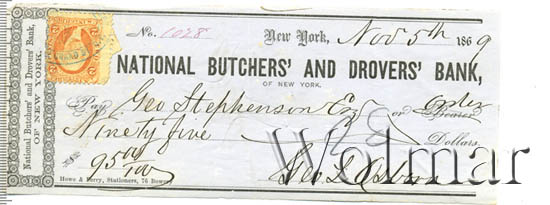 No. 1028 New York, Nov 5th 1869
NATIONAL BUTCHERS' AND DROVERS' BANK,
OF NEW YORK.
Pay Geo Stephenson Esq or Order Bearer
Ninety five Dollars
$95 00/100
Geo
Howe & Ferry, Stationers, 76 Bowery
National Butchers' and Drovers' Bank,
OF NEW YORK.
Wolmar